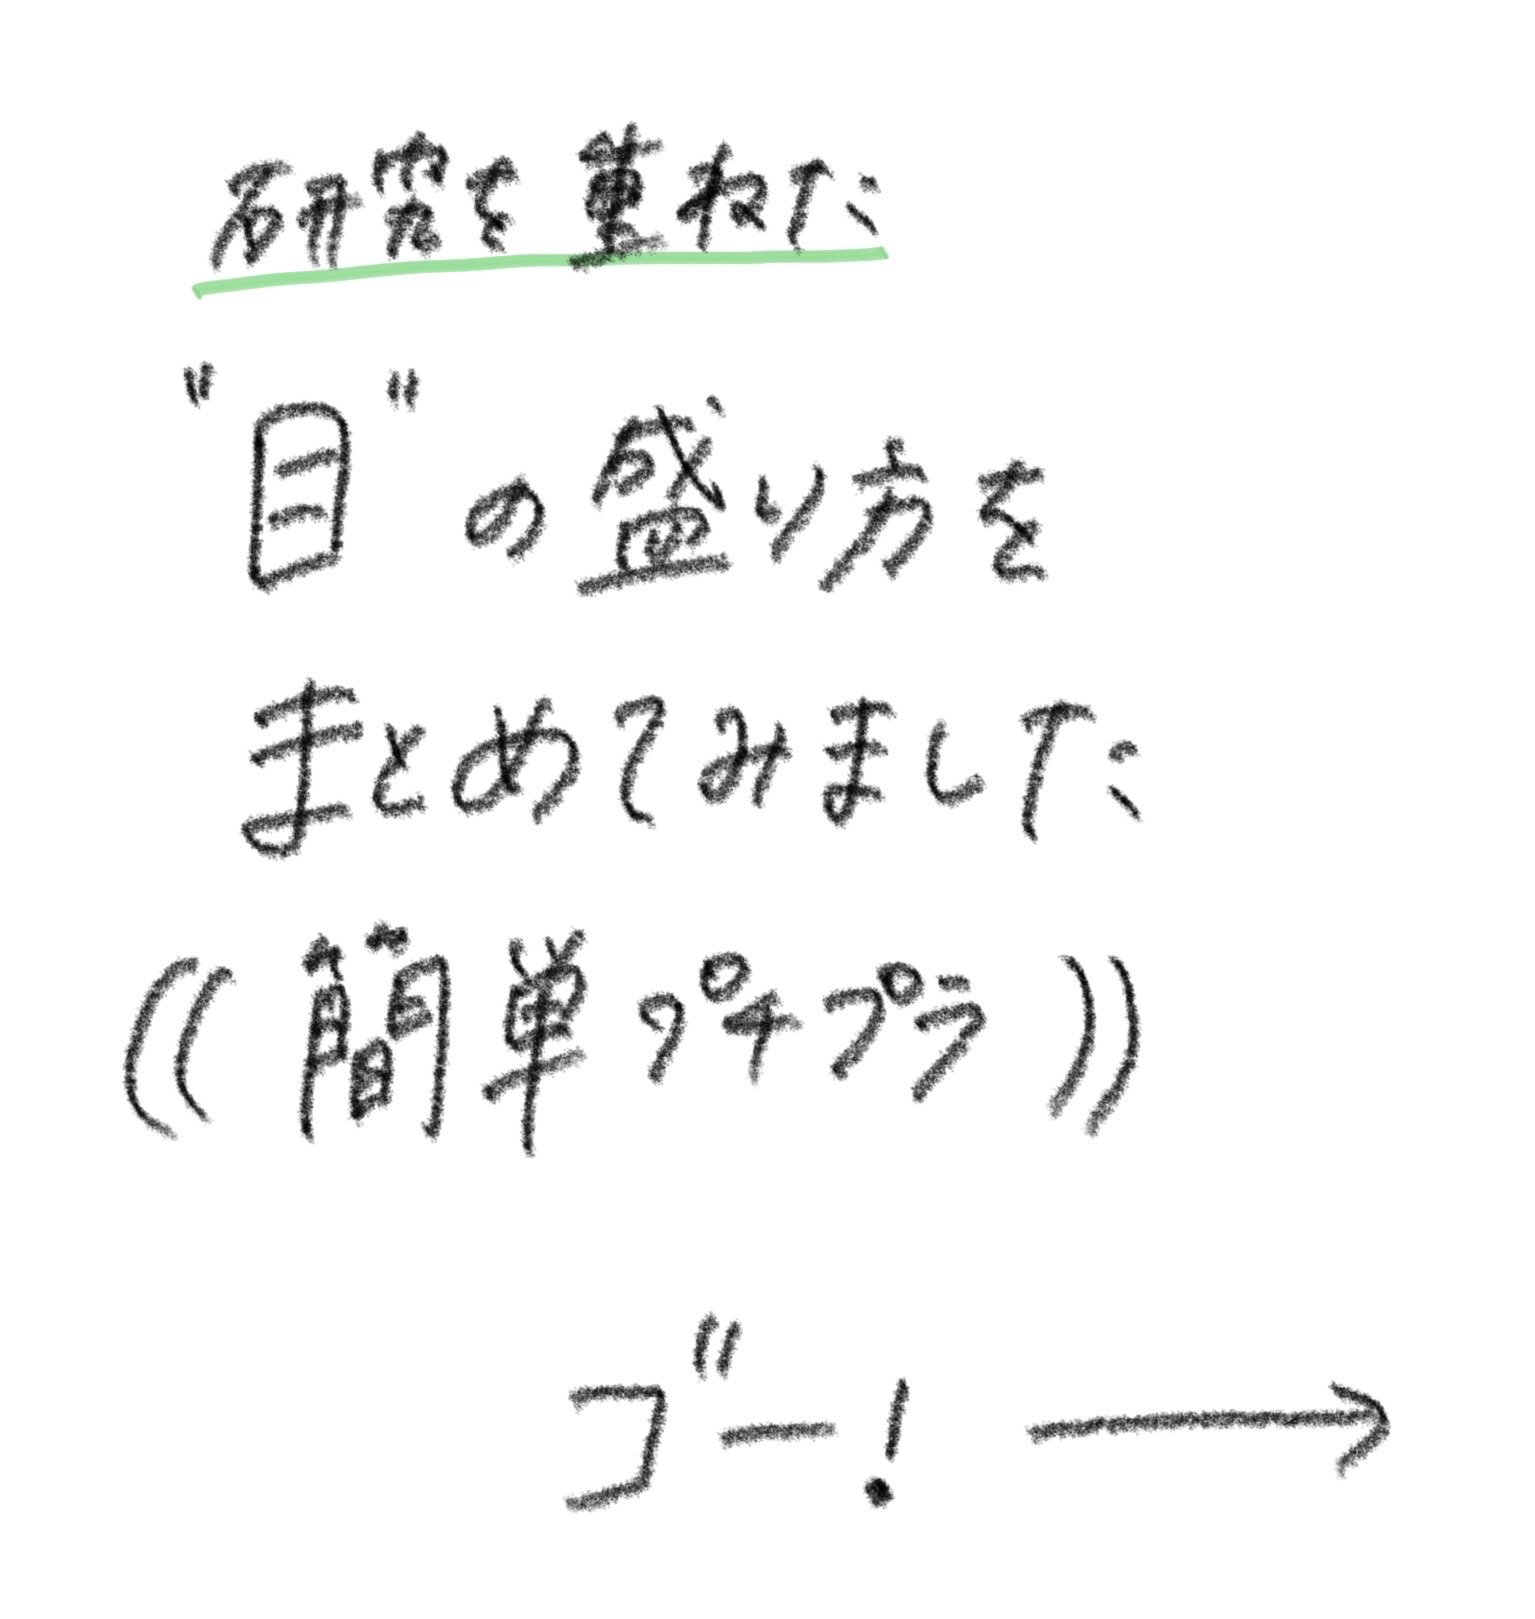 研究を重ねた
"目"の盛り方を
まとめてみました
((簡単プチプラ))
ゴー! →